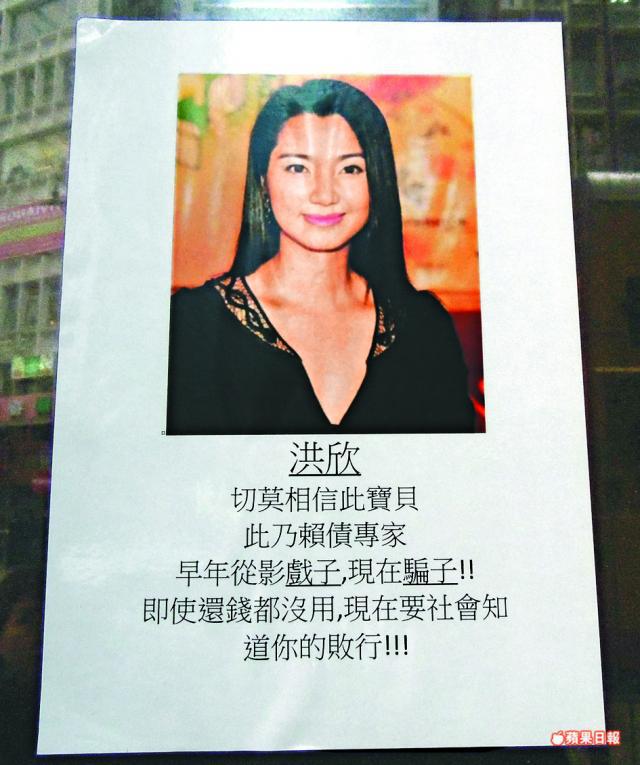 洪欣
切莫相信此寶貝
此乃賴債專家
早年從影戲子,現在騙子!!
即使還錢都沒用,現在要社會知
道你的敗行!!!
蘋果日報